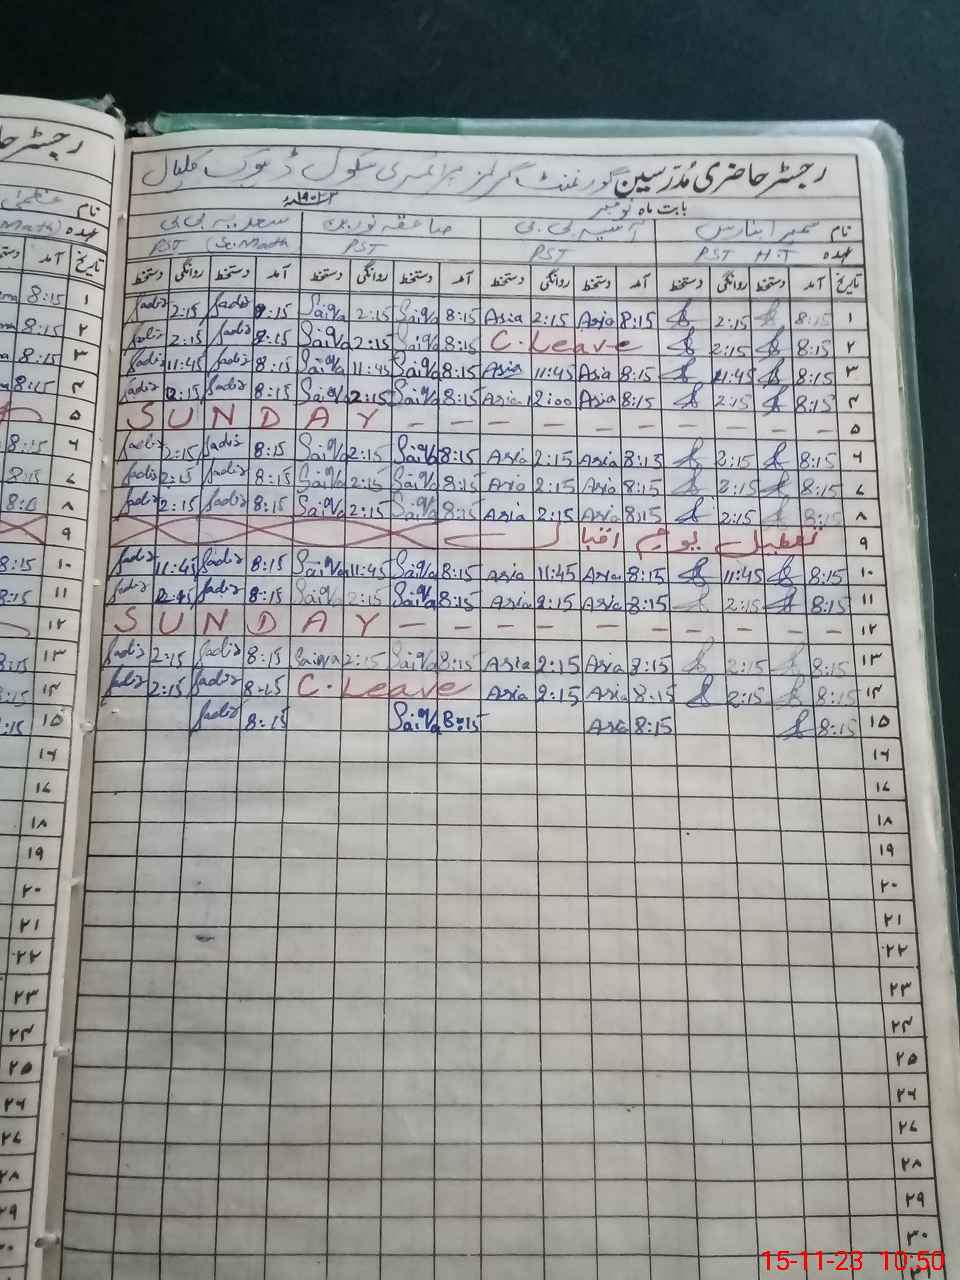 رجسٹر حاضری مُدرّسین گورنمنٹ گرلز پرائمری سکول ڈھوک
بابت ماہ نومبر
نام آسیہ بی بی صاعقہ نورین سعدیہ بی بی
عہدہ PST H.T PST PST PST (Sc.Math
تاریخ آمد دستخط روانگی دستخط آمد دستخط روانگی دستخط آمد دستخط روانگی دستخط آمد دستخط روانگی دستخط
۱ 8:15 2:15 8:15 Asia 2:15 Asia 8:15 Saiqa 2:15 Saiqa 8:15 Sadia 2:15 Sadia
۲ 8:15 2:15 C. Leave 8:15 Saiqa 2:15 Saiqa 8:15 Sadia 2:15 Sadia
۳ 8:15 11:45 8:15 Asia 11:45 Asia 8:15 Saiqa 11:45 Saiqa 8:15 Sadia 11:45 Sadia
۴ 8:15 2:15 8:15 Asia 12:00 Asia 8:15 Saiqa 2:15 Saiqa 8:15 Sadia 2:15 Sadia
۵ SUNDAY – – – – – – – – – –
۶ 8:15 2:15 8:15 Asia 2:15 Asia 8:15 Saiqa 2:15 Saiqa 8:15 Sadia 2:15 Sadia
۷ 8:15 2:15 8:15 Asia 2:15 Asia 8:15 Saiqa 2:15 Saiqa 8:15 Sadia 2:15 Sadia
۸ 8:15 2:15 8:15 Asia 2:15 Asia 8:15 Saiqa 2:15 Saiqa 8:15 Sadia 2:15 Sadia
۹ تعطیل یومِ اقبال
۱۰ 8:15 11:45 8:15 Asia 11:45 Asia 8:15 Saiqa 11:45 Saiqa 8:15 Sadia 11:45 Sadia
۱۱ 8:15 2:15 8:15 Asia 2:15 Asia 8:15 Saiqa 2:15 Saiqa 8:15 Sadia 2:15 Sadia
۱۲ SUNDAY – – – – – – – – – –
۱۳ 8:15 2:15 8:15 Asia 2:15 Asia 8:15 Saiqa 2:15 Saiqa 8:15 Sadia 2:15 Sadia
۱۴ 8:15 2:15 8:15 Asia 2:15 Asia C. Leave 8:15 Sadia 2:15 Sadia
۱۵ 8:15 8:15 Asia 8:15 Saiqa 8:15 Sadia
۱۶
۱۷
۱۸
۱۹
۲۰
۲۱
۲۲
۲۳
۲۴
۲۵
۲۶
۲۷
۲۸
۲۹
۳۰
۳۱
15-11-23 10:50